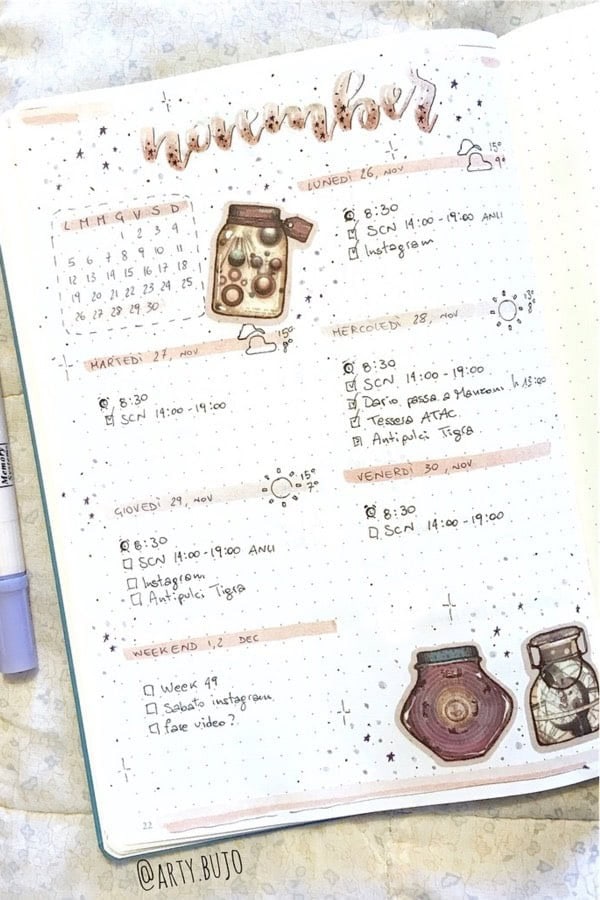 november
L M M G V S D
1 2 3 4
5 6 7 8 9 10 11
12 13 14 15 16 17 18
19 20 21 22 23 24 25
26 27 28 29 30
LUNEDÌ 26, NOV
15° 9°
8:30
SCN 14:00-19:00 ANLI
Instagram
MARTEDÌ 27, NOV
15° 8°
8:30
SCN 14:00-19:00
MERCOLEDÌ 28, NOV
13° 8°
8:30
SCN 14:00-19:00
Dario passa a Manzoni h 13:00
Tessera ATAC
Antipulci Tigra
GIOVEDÌ 29, NOV
15° 7°
8:30
SCN 14:00-19:00 ANLI
Instagram
Antipulci Tigra
VENERDÌ 30, NOV
8:30
SCN 14:00-19:00
WEEKEND 1,2 DEC
Week 49
Sabato instagram
fare video?
22
@ARTY.BUJO
Memory